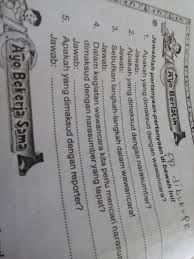 Ayo Berlatih
B. Jawablah pertanyaan-pertanyaan di bawah
1. Apakah yang dimaksud dengan wawancara?
Jawab:
2. Apakah yang dimaksud dengan narasumber?
Jawab:
3. Sebutkan langkah-langkah dalam wawancara!
Jawab:
4. Dalam kegiatan wawancara kita perlu mencari narasu
dimaksud dengan narasumber yang tepat?
Jawab:
5. Apakah yang dimaksud dengan reporter?
Jawab:
Ayo Bekerja Sama